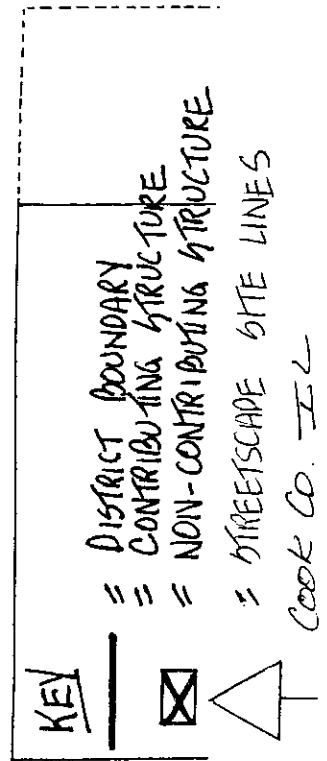 KEY
= DISTRICT BOUNDARY
= CONTRIBUTING STRUCTURE
= NON-CONTRIBUTING STRUCTURE
= STREETSCAPE SITE LINES
COOK CO. IL